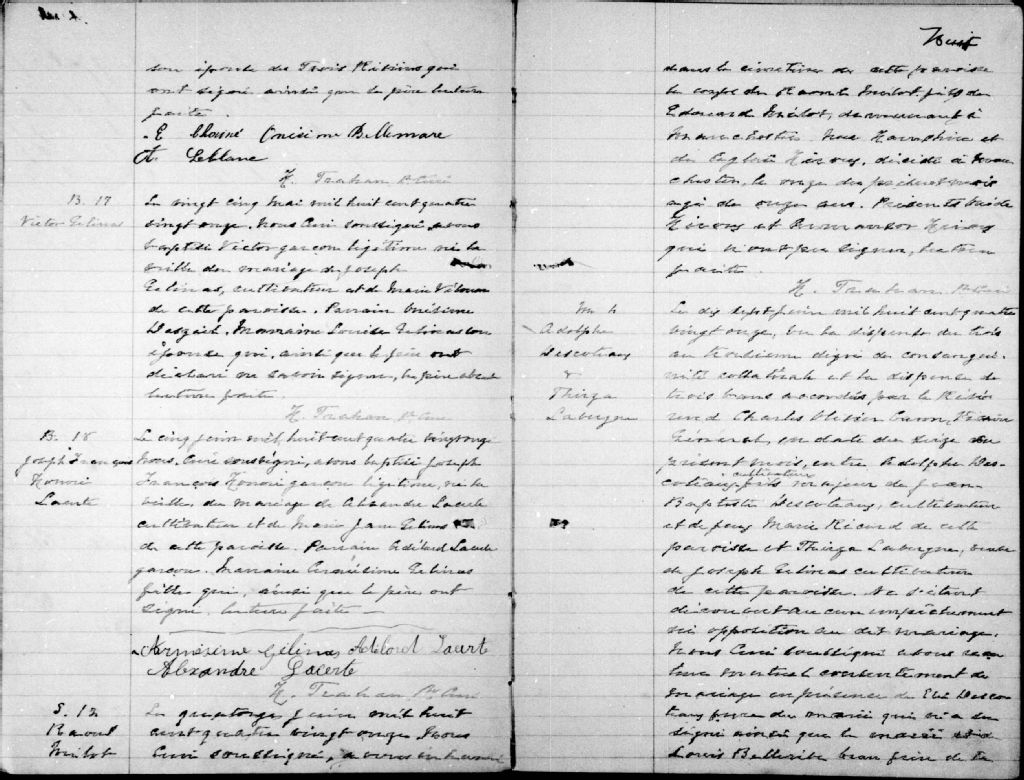 son épouse des Trois Rivières qui
ont signé ainsi que le père lecture
faite.
E Onésime Bellemare
A. Leblanc
H. Trahan Ptre Curé
B. 17
Victor Gelinas
Le vingt cinq mai mil huit cent quatre
vingt onze. Nous Curé soussigné avons
baptisé Victor garçon légitime né la
veille du mariage de Joseph
Gelinas, cultivateur et de Marie
de cette paroisse. Parrain Onésime
Marraine Louise Gelinas son
épouse qui, ainsi que le père ont
déclaré ne savoir signer, le père absent
lecture faite.
H. Trahan Ptre Curé
B. 18
Joseph François
Honoré
Lacerte
Le cinq juin mil huit cent quatre vingt onze
Nous, Curé soussigné, avons baptisé Joseph
François Honoré garçon légitime, né la
veille, du mariage de Alexandre Lacerte
cultivateur et de Marie Jane Gelinas
de cette paroisse. Parrain Adélard Lacerte
garçon. Marraine Arméline Gelinas
fille qui, ainsi que le père ont
signé. lecture faite
Gélinas Adélord Lacerte
Alexandre Lacerte
H. Trahan Ptre Curé
S. 12
Raoul
Milot
Le quatorze juin mil huit
cent quatre vingt onze Nous
Curé soussigné, avons inhumé
Huit
dans le cimetière de cette paroisse
le corps de Raoul Milot fils de
Edouard Milot, demeurant à
Manchester New Hampshire et
de décédé à Man
chester, le onze du présent mois
agé de onze ans. Présents
et
qui n'ont pu signer, lecture
faite.
H. Trahan Ptre Curé
M. 4
Adolphe
Descoteaux
&
Thirza
Lavergne
Le dix sept juin mil huit cent quatre
vingt onze, vu la dispense du trois
au troisième degré de consangui-
nité collatérale et la dispense de
trois bans accordés par le Révé
rend Charles Olivier Caron, Vicaire
Général, en date du seize du
présent mois, entre Adolphe Des-
cultivateur
coteaux fils majeur de Jean
Baptiste Descoteaux, cultivateur
et de feue Marie Ricard de cette
paroisse et Thirza Lavergne, veuve
de Joseph Gelinas cultivateur
de cette paroisse. Ne s'étant
découvert aucun empêchement
ni opposition au dit mariage.
Nous Curé soussigné avons reçu
leur mutuel consentement de
mariage en présence de Elie Desco
teaux frère du marié qui n'a su
signé ainsi que le marié et de
Louis Bellerive beau frère de la